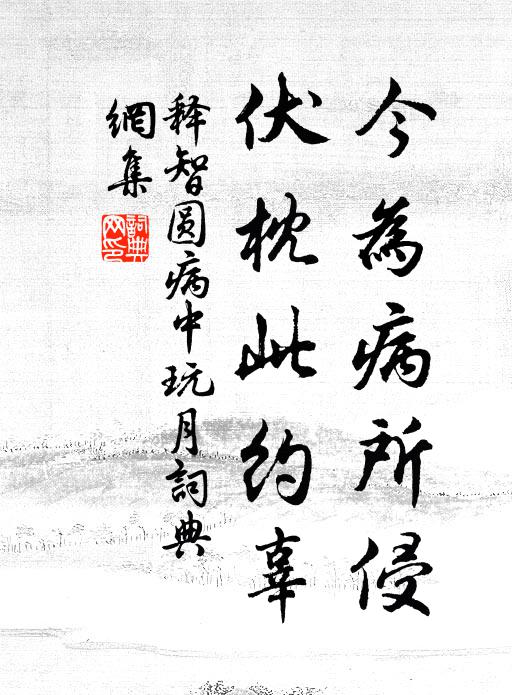 今為病所侵
伏枕此约辜
释智圆病中玩月詞典
網集
詞典
网印